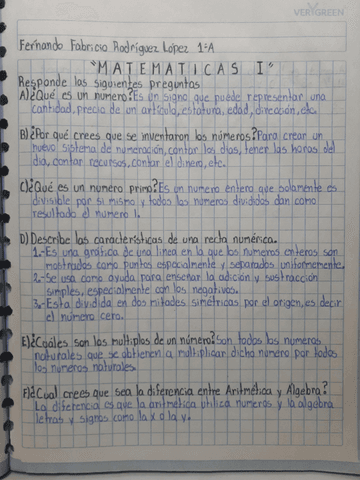 VERYGREEN
Fernando Fabricio Rodríguez López 1°A
"MATEMATICAS I"
Responde las siguientes preguntas
A)¿Qué es un numero? Es un signo que puede representar una
cantidad, precio de un artículo, estatura, edad, dirección, etc.
B)¿Por qué crees que se inventaron los números? Para crear un
nuevo sistema de numeración, contar los días, tener las horas del
día, contar recursos, contar el dinero, etc.
C)¿Qué es un numero primo? Es un numero entero que solamente es
divisible por si mismo y todos los numeros divididos dan como
resultado el numero 1.
D) Describe las características de una recta numérica.
1.-Es una gráfica de una linea en la que los numeros enteros son
mostrados como puntos espacialmente y separados uniformemente.
2.-Se usa como ayuda para enseñar la adición y sustracción
simples, especialmente con los negativos.
3.-Esta dividida en dos mitades simétricas por el origen, es decir
el numero cero.
E)¿Cuáles son los multiplos de un número? Son todos los numeros
naturales que se obtienen a multiplicar dicho numero por todos
los numeros naturales.
F)¿Cual crees que sea la diferencia entre Aritmética y Algebra?
La diferencia es que la aritmética utiliza numeros y la algebra
letras y signos como la x o la y.